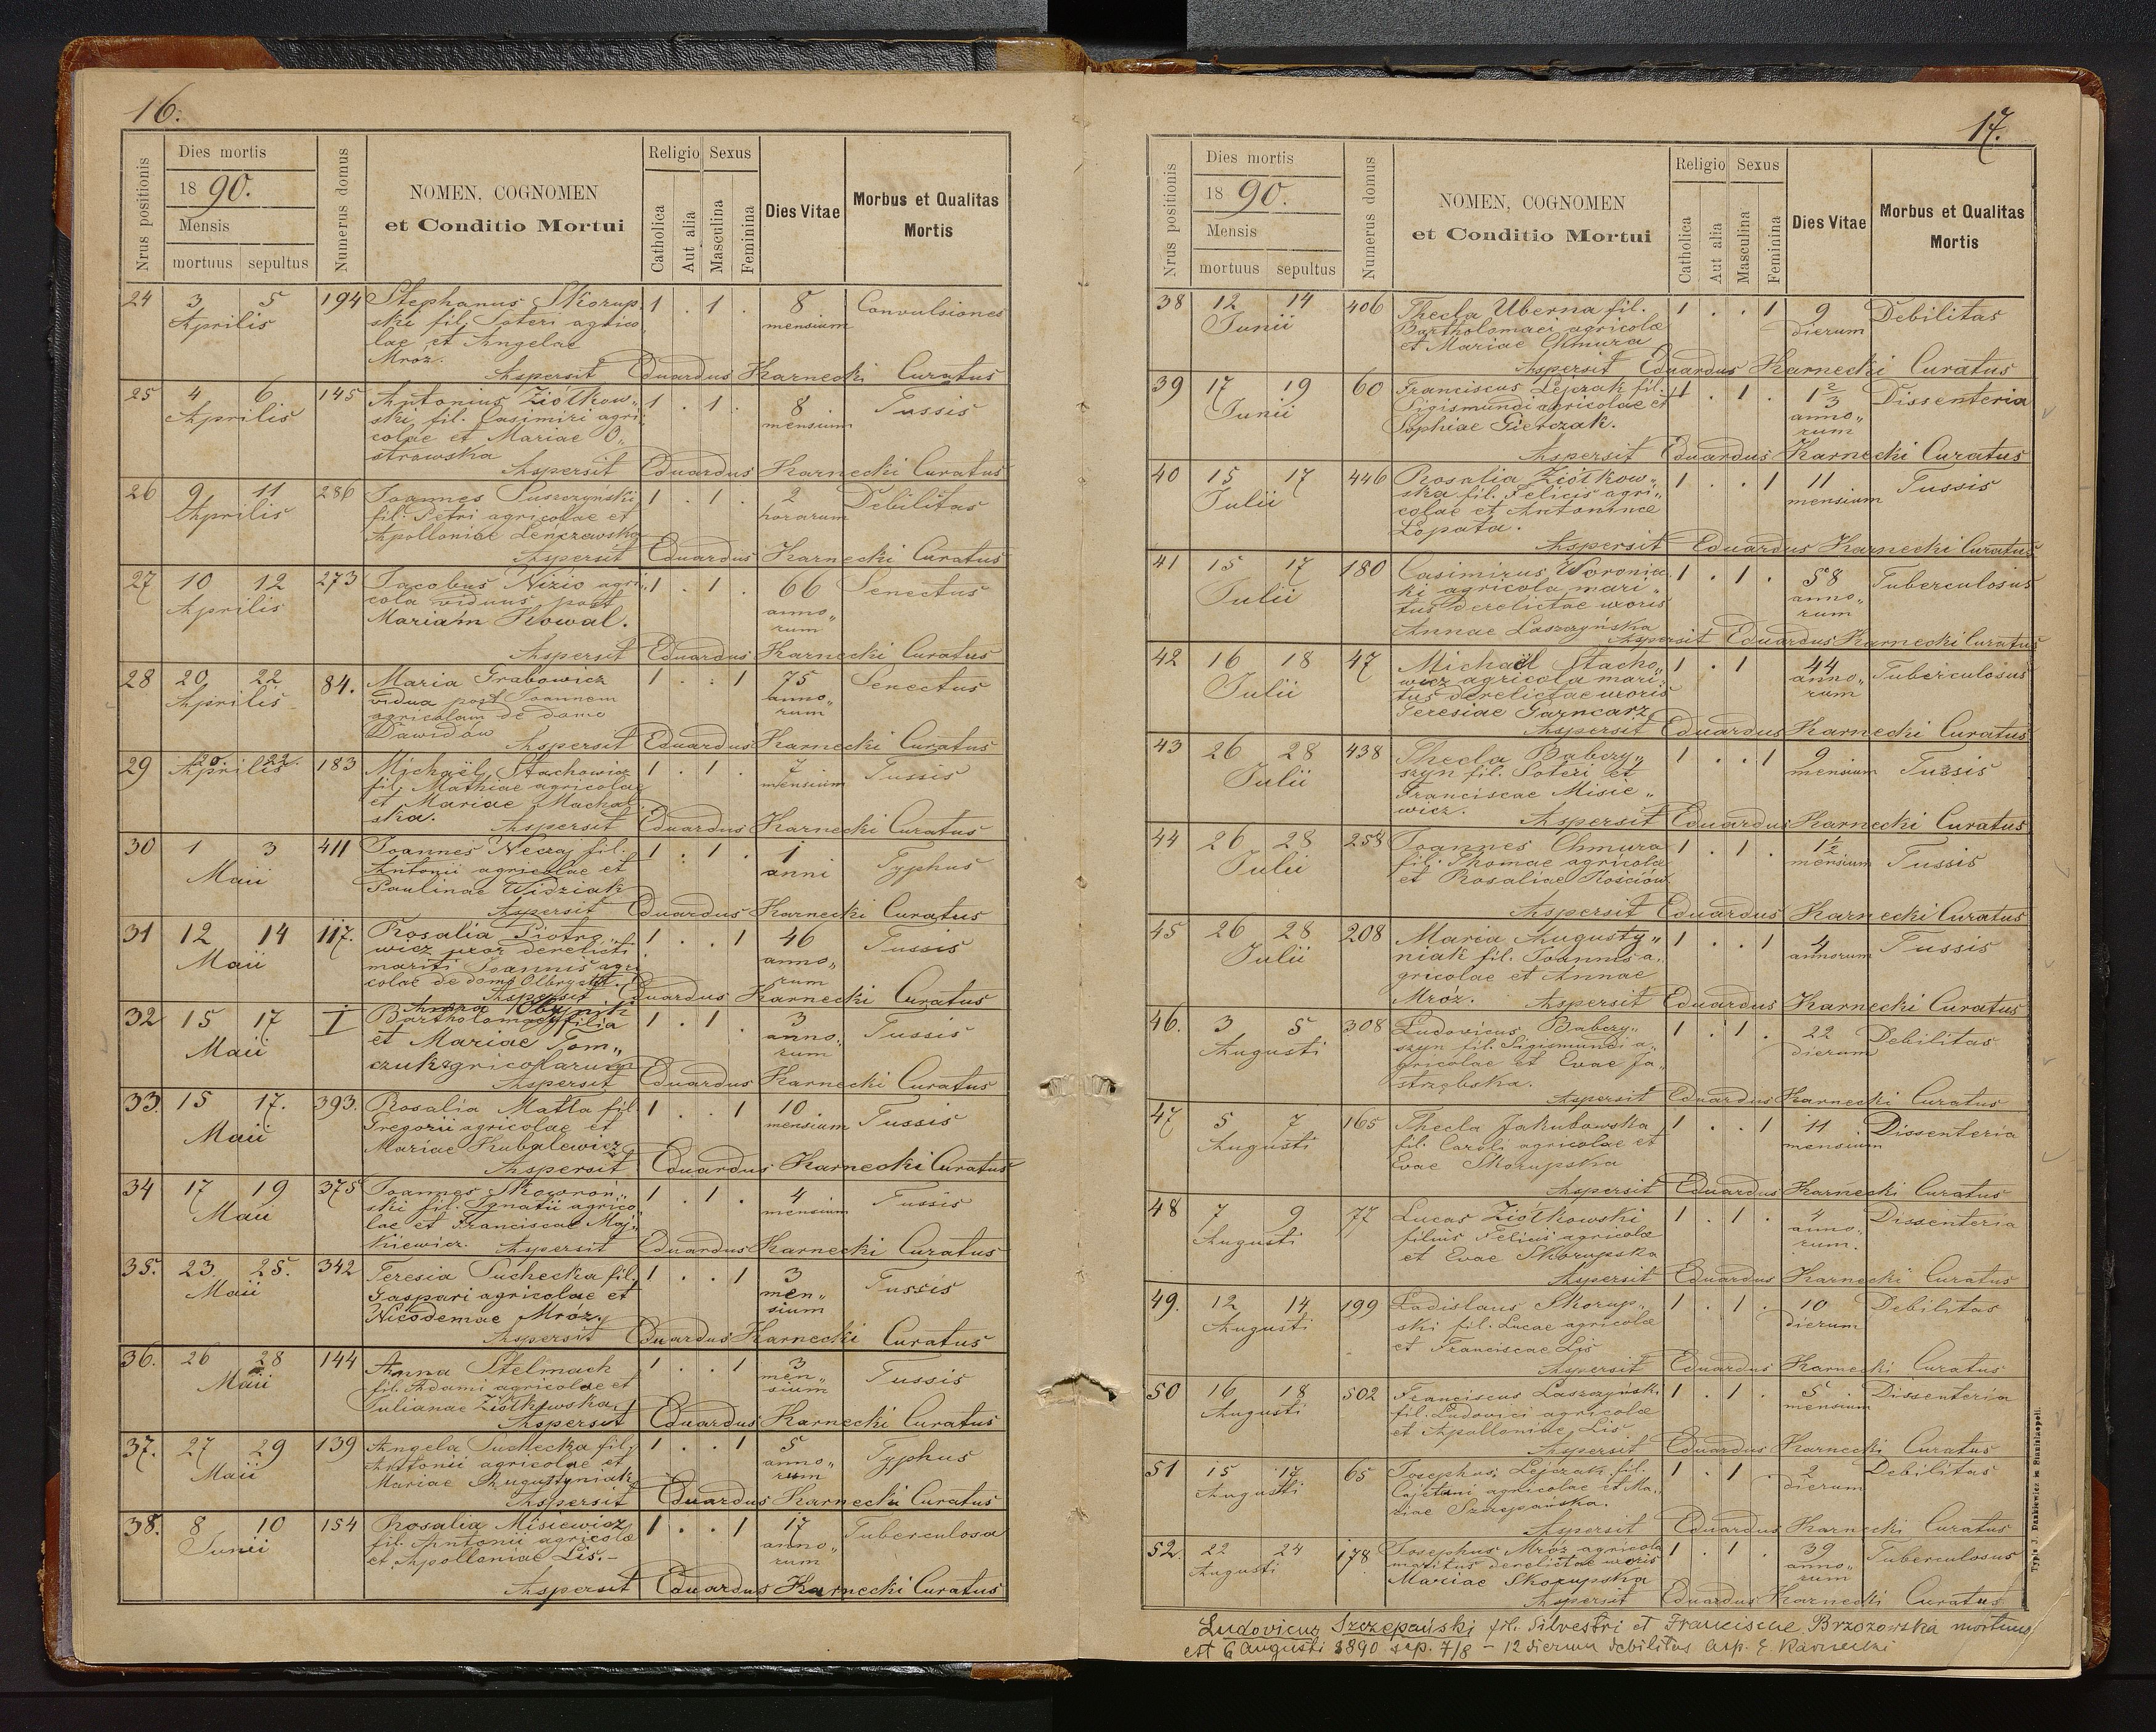 16.
Nrus positionis
Dies mortis
1890.
Mensis
mortuus sepultus
Numerus domus
NOMEN, COGNOMEN
et Conditio Mortui
Religio Sexus
Catholica
Aut alia
Masculina
Feminina
Dies Vitae
Morbus et Qualitas
Mortis
24 3 5 194 Stephanus Skorup 1 . 1 . 8 Convulsiones
Aprilis ski fil. Soteri agrico mensium
lae et Angelae
Mróz.
Aspersit Eduardus Karnecki Curatus
25 4 6 145 Antonius Ziółkow„ 1 . 1 . 8 Tussis
Aprilis ski fil. Casimiri agri mensium
colae et Mariae O„
strowska
Aspersit Eduardus Karnecki Curatus
26 9 11 286 Joannes Puszczyński 1 . 1 . 2 Debilitas
Aprilis fil. Petri agricolae et horarum
Apolloniae Lenczewska
Aspersit Eduardus Karnecki Curatus
27 10 12 273 Jacobus Nizio agri„ 1 . 1 . 66 Senectus
Aprilis cola viduus post anno„
Mariam Kowal. rum
Aspersit Eduardus Karnecki Curatus
28 20 22 84. Maria Grabowicz 1 . . 1 75 Senectus
Aprilis vidua post Joannem anno„
agricolam de domo rum
Dawidów
Aspersit Eduardus Karnecki Curatus
29 20. 22. 183 Michaël Stachowicz 1 . 1 . 7 Tussis
Aprilis fil. Mathiae agricolae mensium
et Mariae Machal
ska.
Aspersit Eduardus Karnecki Curatus
30 1 3 411 Joannes Neczaj fil. 1 . 1 . 1 Typhus
Maii Antonii agricolae et anni
Paulinae Widziak
Aspersit Eduardus Karnecki Curatus
31 12 14 117. Rosalia Piotro„ 1 . . 1 46 Tussis
Maii wicz uxor derelicti anno„
mariti Joannis agri rum
colae de domo
Aspersit Eduardus Karnecki Curatus
32 15 17 I Anna 1 . 1 . 3 Tussis
Maii Bartholomaei filia anno„
et Mariae Tom„ rum
czuk agricolarum
Aspersit Eduardus Karnecki Curatus
33. 15 17. 393. Rosalia Matla fil 1 . . 1 10 Tussis
Maii Gregorii agricolae et mensium
Mariae Kubalewicz
Aspersit Eduardus Karnecki Curatus
34 17 19 375 Joannes Skowroń„ 1 . 1 . 4 Tussis
Maii ski fil. Ignatii agrico„ mensium
lae et Franciscae Maj„
kiewicz. Aspersit Eduardus Karnecki Curatus
35. 23. 25. 342 Teresia Suchecka fil. 1 . . 1 3 Tussis
Maii Gaspari agricolae et men„
Nicodemae Mróz. sium
Aspersit Eduardus Karnecki Curatus
36. 26 28 144 Anna Stelmach 1 . . 1 3 Tussis
Maii fil. Adami agricolae et men„
Julianae Ziółkowska sium
Aspersit Eduardus Karnecki Curatus
37. 27 29 139 Angela Suchecka fil. 1 . . 1 5 Typhus
Maii Antonii agricolae et anno„
Mariae Augustyniak rum
Aspersit Eduardus Karnecki Curatus
38. 8 10 154 Rosalia Misiewicz 1 . . 1 17 Tuberculosa
Junii fil. Antonii agricolae anno„
et Apolloniae Lis.- rum
Aspersit Eduardus Karnecki Curatus
17.
Nrus positionis
Dies mortis
1890.
Mensis
mortuus sepultus
Numerus domus
NOMEN, COGNOMEN
et Conditio Mortui
Religio Sexus
Catholica
Aut alia
Masculina
Feminina
Dies Vitae
Morbus et Qualitas
Mortis
38 12 14 406 Thecla Uberna fil. 1 . . 1 9 Debilitas
Junii Bartholomaei agricolae dierum
et Mariae Chmura
Aspersit Eduardus Karnecki Curatus
39 17 19 60 Franciscus Lejczak fil. 1 . 1 . 1 2/3 Dissenteria
Junii Sigismundi agricolae et anno„
Sophiae Pietczak. rum
Aspersit Eduardus Karnecki Curatus
40 15 17 446 Rosalia Ziółkow„ 1 . . 1 11 Tussis
Julii ska fil. Felicis agri„ mensium
colae et Antoninae
Łopata.
Aspersit Eduardus Karnecki Curatus
41 15 17 180 Casimirus Woronia 1 . 1 . 58 Tuberculosus
Julii ki agricola mari„ anno„
tus derelictae uxoris rum
Annae Laszczyńska
Aspersit Eduardus Karnecki Curatus
42 16 18 47 Michaël Stacho„ 1 . 1 44 Tuberculosus
Julii wicz agricola mari„ anno„
tus derelictae uxoris rum
Teresiae Garncarz
Aspersit Eduardus Karnecki Curatus
43 26 28 438 Thecla Babczy„ 1 . . 1 9 Tussis
Julii szyn fil. Soteri et mensium
Franciscae Misie„
wicz.
Aspersit Eduardus Karnecki Curatus
44 26 28 258 Joannes Chmura 1 . 1 . 1 1/2 Tussis
Julii fil. Thomae agricolae mensium
et Rosaliae Kościów.
Aspersit Eduardus Karnecki Curatus
45 26 28 208 Maria Augusty„ 1 . . 1 4 Tussis
Julii niak fil. Joannis a„ annorum
gricolae et Annae
Mróz. Aspersit Eduardus Karnecki Curatus
46. 3 5 308 Ludovicus Babczy„ 1 . 1 . 22 Debilitas
Augusti szyn fil. Sigismundi a„ dierum
gricolae et Evae Ja„
strzębska.
Aspersit Eduardus Karnecki Curatus
47 5 7 165 Thecla Jakubowska 1 . . 1 11 Dissenteria
Augusti fil. Caroli agricolae et mensium
Evae Skorupska
Aspersit Eduardus Karnecki Curatus
48 7 9 77 Lucas Ziółkowski 1 . 1 . 4 Dissenteria
Augusti filius Felicis agricolae anno„
et Evae Skorupska rum.
Aspersit Eduardus Karnecki Curatus
49. 12 14 199 Ladislaus Skorup„ 1 . 1 . 10 Debilitas
Augusti ski fil. Lucae agricolae dierum
et Franciscae Lis
Aspersit Eduardus Karnecki Curatus
50 16 18 502 Franciscus Laszczyński 1 . 1 . 5 Dissenteria
Augusti fil. Ludovici agricolae mensium
et Apolloniae Lis
Aspersit Eduardus Karnecki Curatus
51 15 17 65 Josephus Lejczak fil. 1 . 1 . 2 Debilitas
Augusti Cajetani agricolae et Ma„ dierum
riae Szczepańska.
Aspersit Eduardus Karnecki Curatus
52. 22 24 178 Josephus Mróz agricola 1 . 1 . 39 Tuberculosus
Augusti maritus derelictae uxoris anno„
Mariae Skorupska rum
Aspersit Eduardus Karnecki Curatus
Ludovicus Szczepański fil. Silvestri et Franciscae Brzozowska mortuus
est 6 Augusti 1890 sep. 7/8 - 12 dierum debilitas Asp. E. Karnecki
Typis J. Dankiewicz in Stanislaopoli.